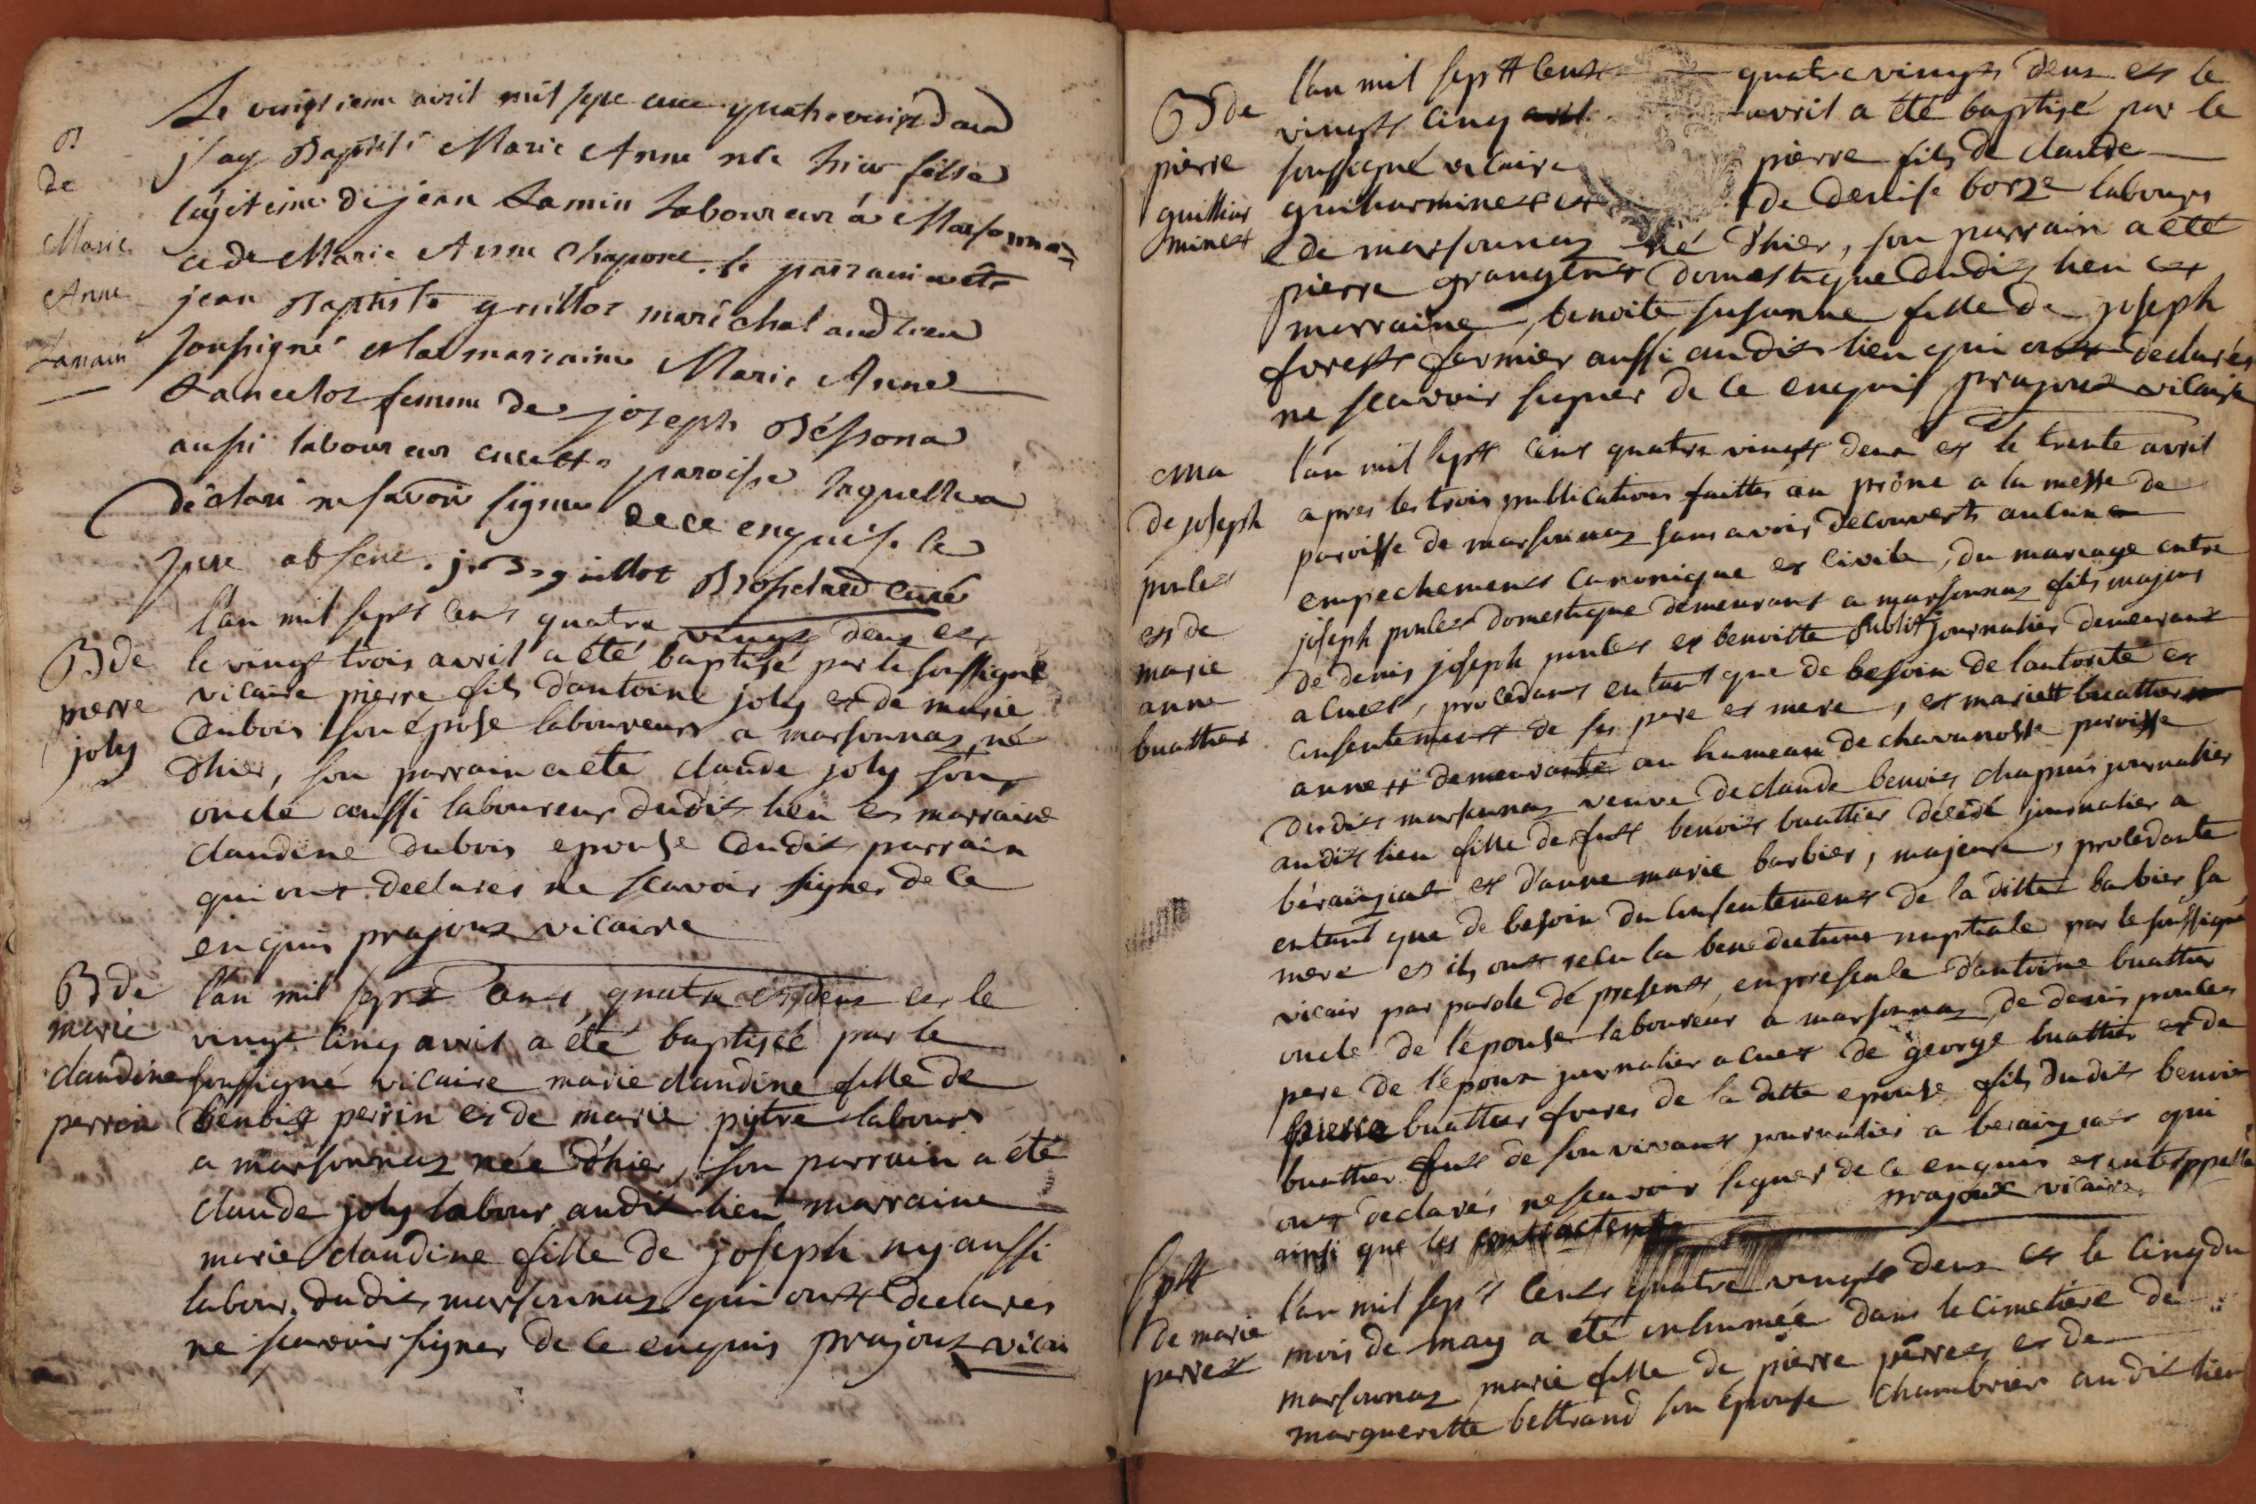 B
de
Marie
Anne
Lamain
Le vingtieme avril mil sept cent quatrevingt deux
j'ay Baptisé Marie Anne née hier fille
légitime de jean Lamin Laboureur à Marsonnaz
et de Marie Anne Chapone. le parrain a été
jean Baptiste guillot maréchal audt lieu
soussigné et la marraine Marie Anne
Lancelot femme de joseph
aussi laboureur en cette paroisse laquelle a
déclaré ne savoir signer de ce enquise le
pere absent. j. B. guillot curé
B de
pierre
joly
l'an mil sept cent quatre vingt deux et
le vingt trois avril a été baptisé par le soussigné
vicaire pierre fils d'antoine joly et de marie
dubois son épose laboureurs a marsonnaz né
d'hier, son parrain a été claude joly son
oncle aussi laboureur dudit lieu et marraine
claudine dubois epouse dudit parrain
qui ont declarés ne scavoir signer de ce
enquis prajoux vicaire
B de
marie
claudine
perrin
l'an mil sept cent quatre et deux et le
vingt cinq avril a été baptisée par le
soussigné vicaire marie claudine fille de
benoit perrin et de marie pytre labours
a marsonnaz née d'hier, son parrain a été
claude joly labour audit lieu marraine
marie claudine fille de joseph ny aussi
labour. dudit marsonnaz qui ont declarés
ne scavoir signer de ce enquis prajoux vicai
B de
pierre
guilliar
minet
l'an mil sept cent quatre vingt deux et le
vingt cinq avril avril a été baptisé par le
soussigné vicaire pierre fils de claude
guiliarminet et de denise borze labours
de marsonnaz né d'hier, son parrain a été
pierre domestique dudit lieu et
marraine benoite susanne fille de joseph
forest fermier aussi audit lieu qui ont declarés
ne scavoir signer de ce enquis prajoux vicaire
ma
de joseph
poulet
et de
marie
anne
buathier
l'an mil sept cent quatre vingt deux et le trente avril
apres les trois publications faittes au prône a la messe de
paroisse de marsonnaz sans avoir decouvert aucun
empechement canonique et civile, du mariage entre
joseph poulet domestique demeurant a marsonnaz fils majeur
de denis joseph poulet et benoitte journalier demeurant
a cuet, procedant entant que de besoin de l'autorité et
consentement de ses pere et mere, et mariett buathier
annett demeurante au hameau de chavanosse paroisse
dudit marsonnaz veuve de claude benoit chapuis journalier
audit lieu fille de fut benoit buattier décédé journalier a
béraingiat et d'anne marie barbier, majeure, procedante
entant que de besoin du consentement de la ditte barbier sa
mere et ils ont recu la benediction nuptiale par le soussigné
vicair par parole de present, en presence d'antoine buattier
oncle de l'épouse laboureur a marsonnaz, de denis poulet
pere de l'époux journalier a cuet de george buattier et de
pierre buattier freres de la ditte epouse fils dudit benoit
buattier fut de son vivant journalier a beraingiat qui
ont declarés ne scavoir signer de ce enquis et interppellé
ainsi que les contractents prajoux vicaire
spt
de marie
perret
l'an mil sept cent quatre vingt deux et le cinq du
mois de may a été inhumée dans le cimetiere de
marsonnaz marie fille de pierre pérret et de
margueritte beltrand son épouse chambrier audit lieu